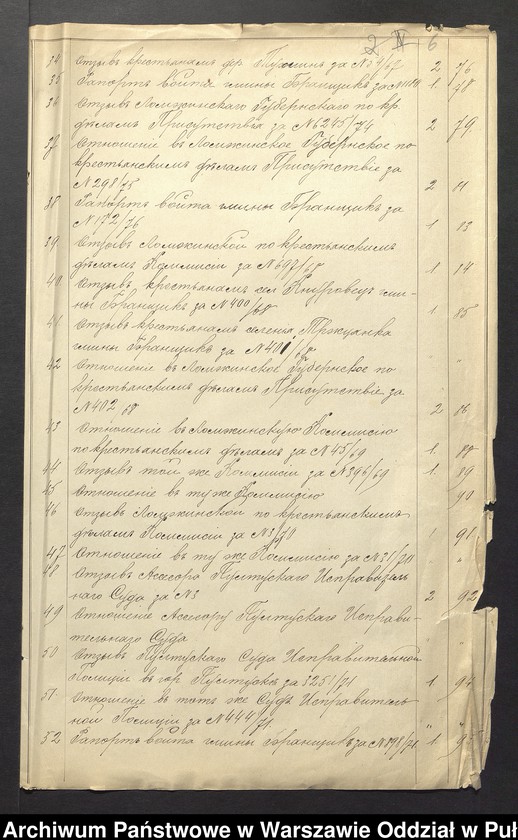 2 IV 6
34 Отзывъ крестьянамъ дер. за № 37/67 2 76
35 Рапортъ войта гмины Бранщикъ за № 1 78
36 Отзывъ Ломжинскаго Губернскаго по кр.
дѣламъ Присутствія за № 6245/74 2 79
37 Отношеніе въ Ломжинское Губернское по
крестьянскимъ дѣламъ Присутствіе за
№ 298/75 2 11
38 Рапортъ войта гмины Бранщикъ за
№ 172/76 1 13
39 Отзывъ Ломжинской по крестьянскимъ
дѣламъ Коммисіи за № 697/68 1 14
40 Отзывъ крестьянамъ сел. гми-
ны Бранщикъ за № 400/68 1 85
41 Отзывъ крестьянамъ селенія Тржцянка
гмины Бранщикъ за № 401/68 " "
42 Отношеніе въ Ломжинское Губернское по
крестьянскимъ дѣламъ Присутствіе за
№ 402 68 2 86
43 Отношеніе въ Ломжинскую Коммисію
по крестьянскимъ дѣламъ за № 45/69 1 88
44 Отзывъ той же Коммисіи за № 396/69 1 89
45 Отношеніе въ ту же Коммисію 90
46 Отзывъ Ломжинской по крестьянскимъ
дѣламъ Коммисіи за № 3/70 1 91
47 Отношеніе въ ту же Коммисію за № 31/70 "
48 Отзывъ Асесора Пултускаго Исправитель
наго Суда за № 3 2 92
49 Отношеніе Асесору Пултускаго Исправи-
тельнаго Суда "
50 Отзывъ Пултускаго Суда Исправительной
Полиціи въ гор. Пултускѣ за 325/71 1 94
51 Отношеніе въ тотъ же Судъ Исправитель
ной Полиціи за № 444/71 " "
52 Рапортъ войта гмины Бранщикъ за № 898/71 1 95
Archiwum Państwowe w Warszawie Oddział w Puł